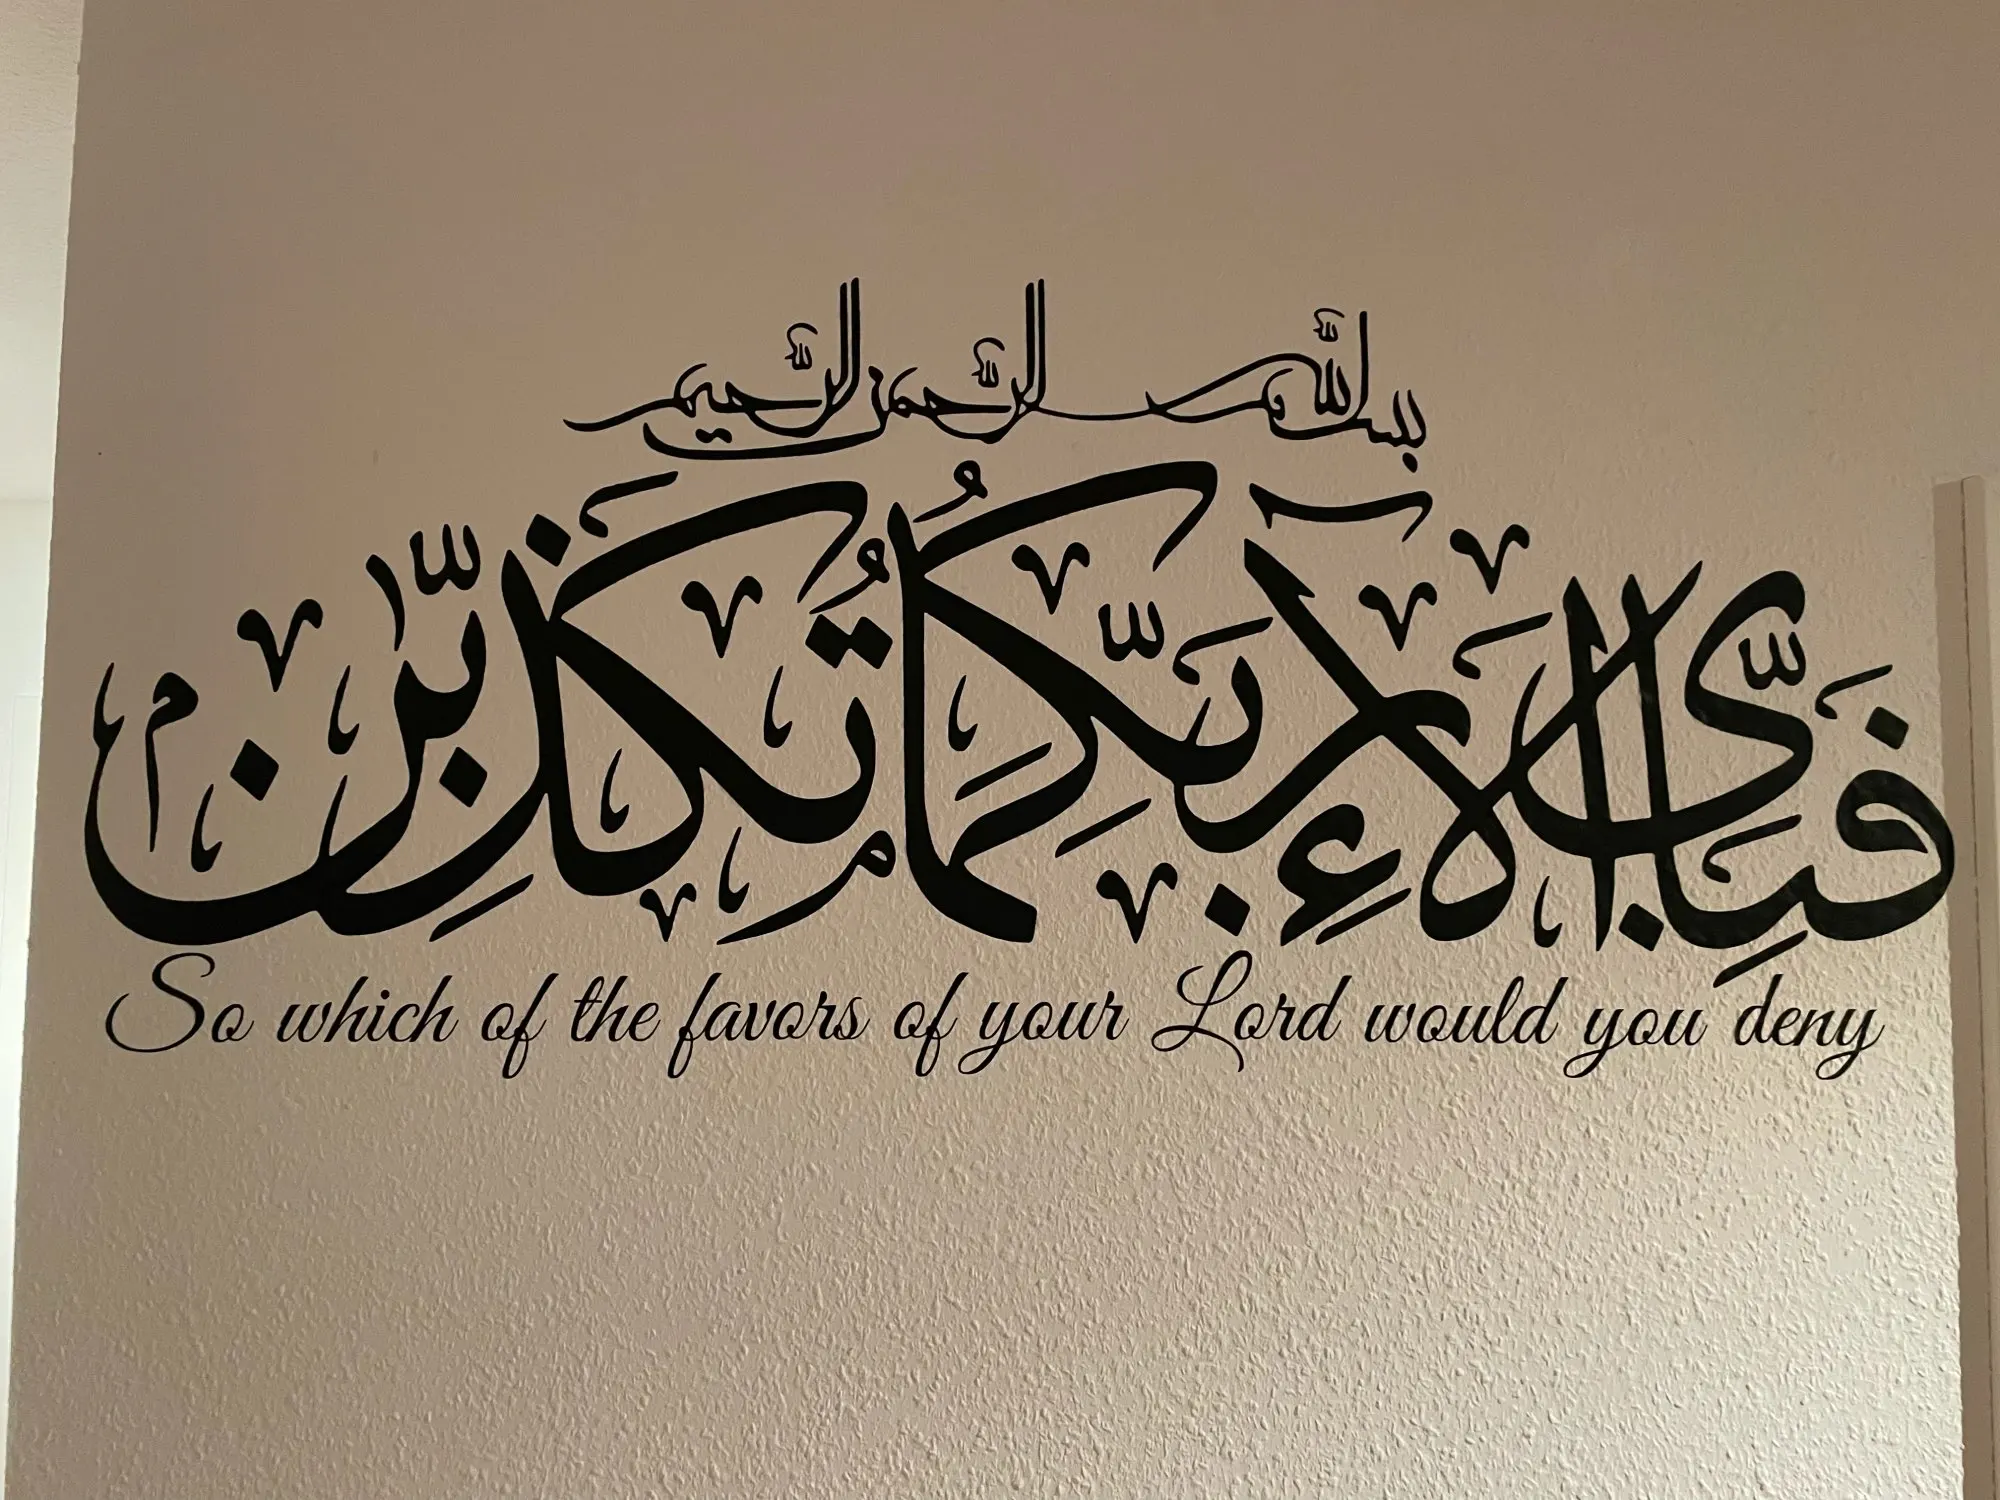 بسم الله الرحمن الرحيم
فَبِأَيِّ آلَاءِ رَبِّكُمَا تُكَذِّبَانِ
So which of the favors of your Lord would you deny